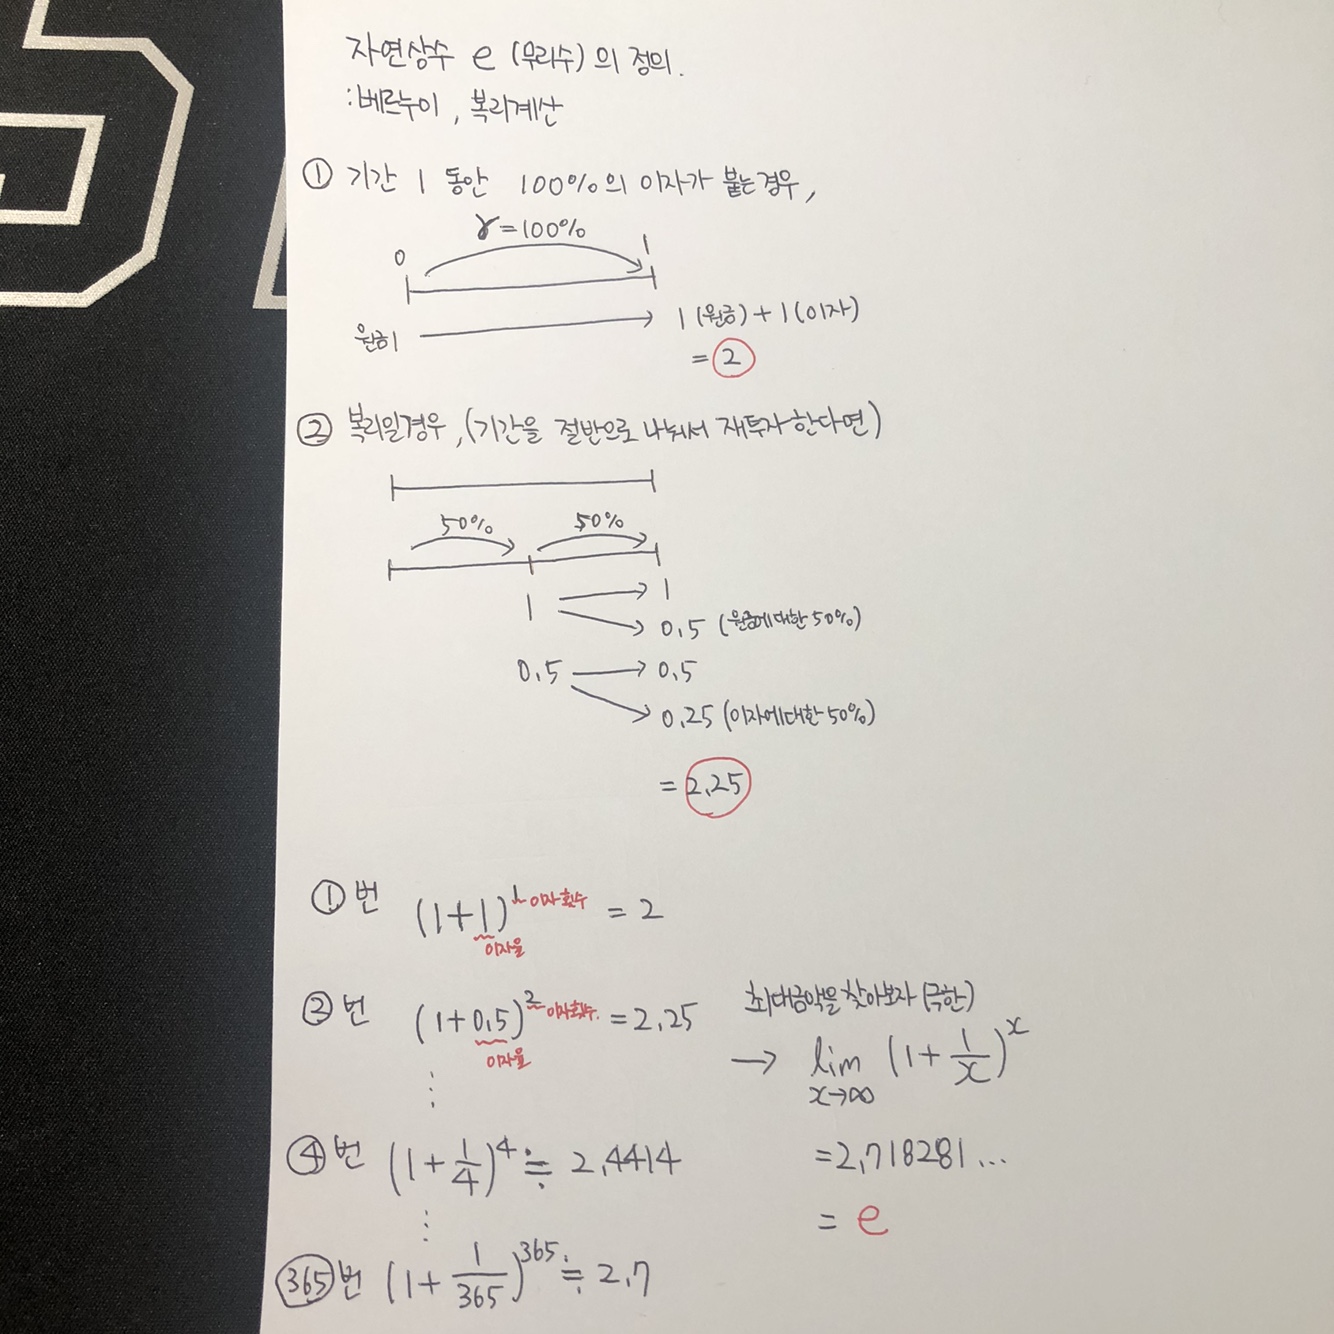 자연상수 e (무리수)의 정의.
:베르누이, 복리계산
① 기간 1 동안 100%의 이자가 붙는경우,
r=100%
0 1
원금1 → 1(원금)+1(이자)
= 2
② 복리일경우, (기간을 절반으로 나눠서 재투자한다면)
50% 50%
1 → 1
0.5 (원금에대한 50%)
0.5 → 0.5
0.25 (이자에대한 50%)
= 2.25
①번 (1+1)^1 이자횟수 = 2
이자율
②번 (1+0.5)^2 이자횟수. = 2.25
이자율
⋮
④번 (1+1/4)^4 ≒ 2.4414
⋮
365번 (1+1/365)^365 ≒ 2.7
최대금액을 찾아보자 (극한)
→ lim x→∞ (1+1/x)^x
=2.718281...
= e